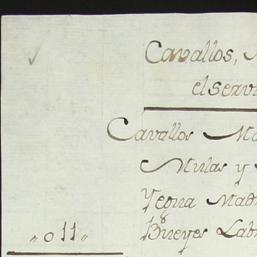 Cavallos,
el serv
Cavallos Ma
Mulas y
Yegua Mad
8
Bueyes Lab
„011„